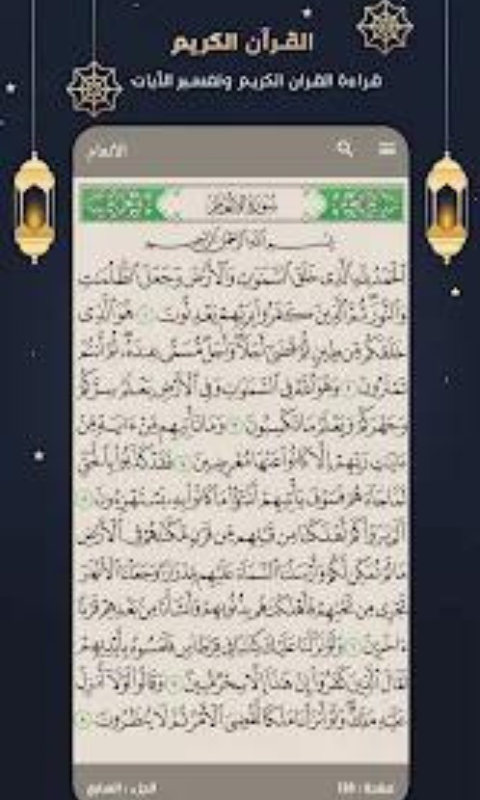 القرآن الكريم
قراءة القران الكريم وتفسير الآيات
الأنعام
سورة الأنعام
بسم الله الرحمن الرحيم
الحمد لله الذي خلق السموت والأرض وجعل الظلمت
والنور ثم الذين كفروا بربهم يعدلون ١ هو الذي
خلقكم من طين ثم قضى أجلا وأجل مسمى عنده ثم أنتم
تمترون ٢ وهو الله في السموت وفي الأرض يعلم سركم
وجهركم ويعلم ما تكسبون ٣ وما تأتيهم من ءاية من
ءايت ربهم إلا كانوا عنها معرضين ٤ فقد كذبوا بالحق
لما جاءهم فسوف يأتيهم أنبؤا ما كانوا به يستهزءون ٥
ألم يروا كم أهلكنا من قبلهم من قرن مكنهم في الأرض
ما لم نمكن لكم وأرسلنا السماء عليهم مدرارا وجعلنا الأنهر
تجري من تحتهم فأهلكنهم بذنوبهم وأنشأنا من بعدهم قرنا
ءاخرين ٦ ولو نزلنا عليك كتبا في قرطاس فلمسوه بأيديهم
لقال الذين كفروا إن هذا إلا سحر مبين ٧ وقالوا لولا أنزل
عليه ملك ولو أنزلنا ملكا لقضي الأمر ثم لا ينظرون ٨
الجزء : السابع